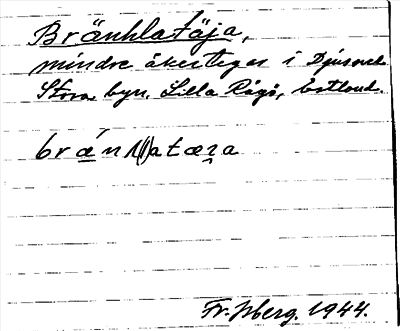 Bränhlatäja,
mindre åkerteger i
Stora byn. Lilla Rågö, Estland.
bránn(l)atæza
Fr. Isberg. 1944.